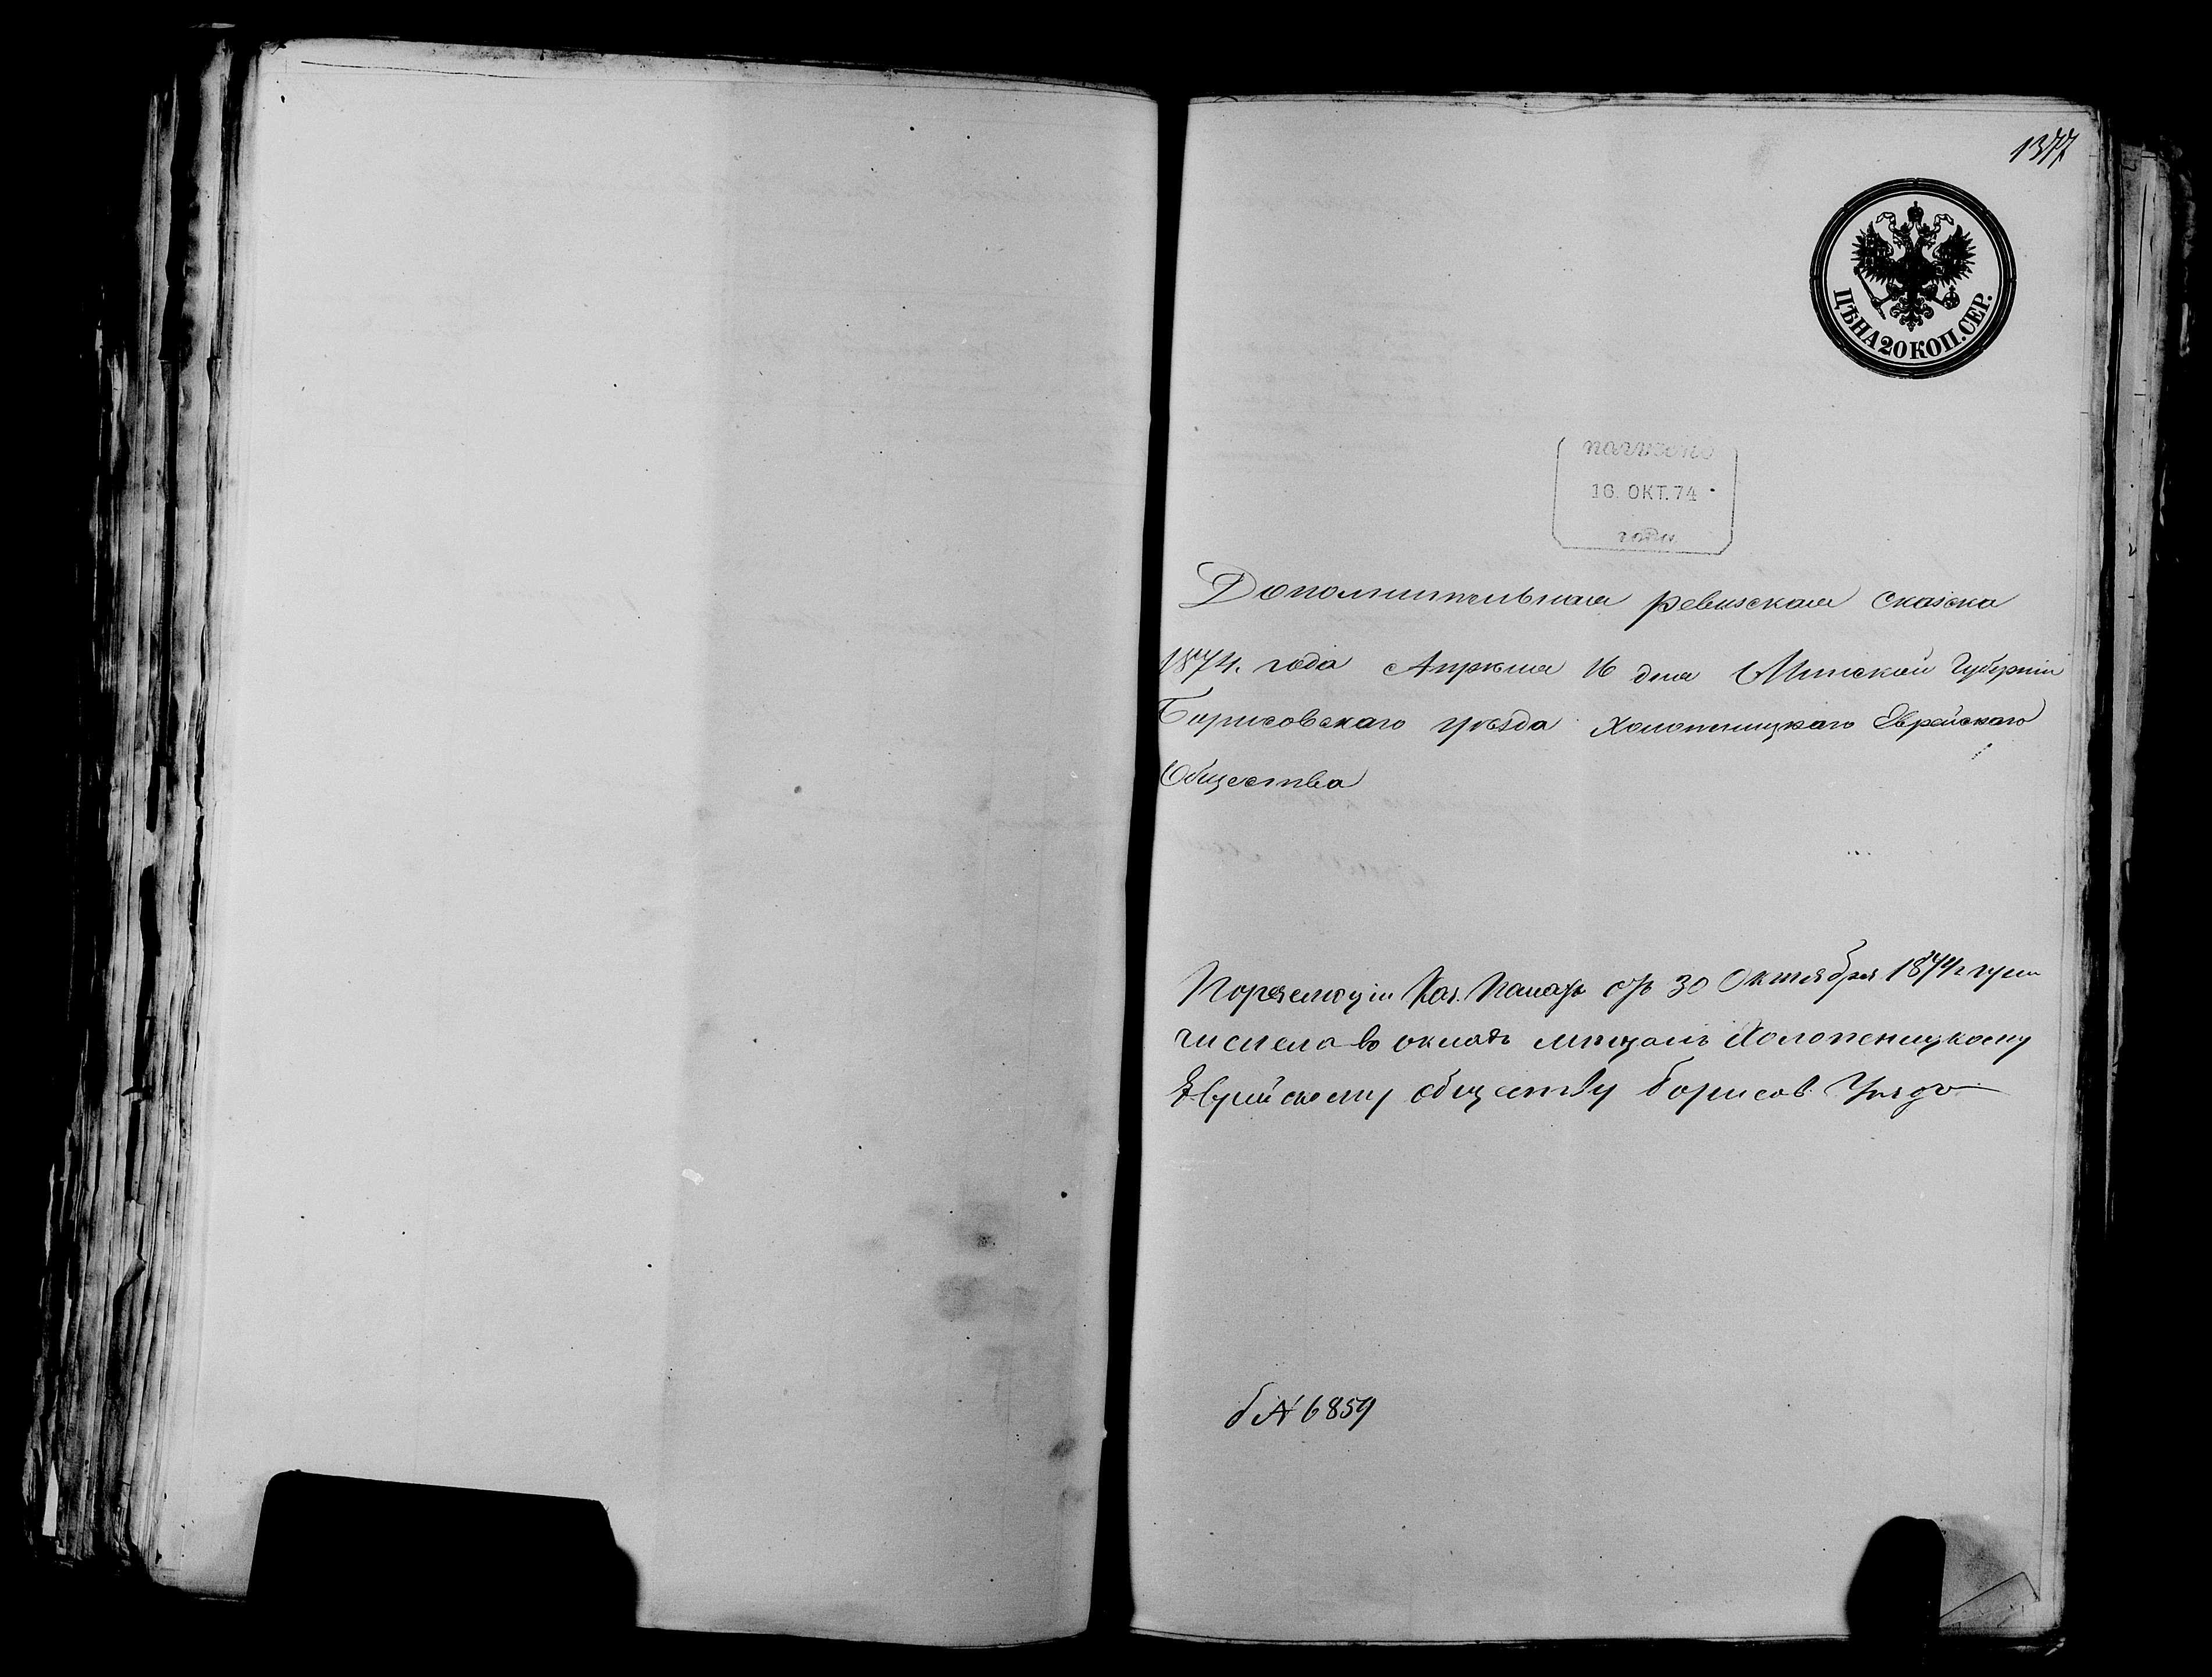 1377
ЦѢНА 20 КОП. СЕР.
получено
16. ОКТ. 74
года
Дополнительная ревизская сказка
1874. года Апрѣля 16 дня Минской Губерніи
Борисовскаго уѣзда Холопеницкаго Еврейскаго
Общества
По резолюціи Каз. Палаты 30 Октября 1874 г. при
числена въ окладъ мѣщанъ Холопеницкому
Еврейскому обществу Борисов. Уѣзда
№ 6859